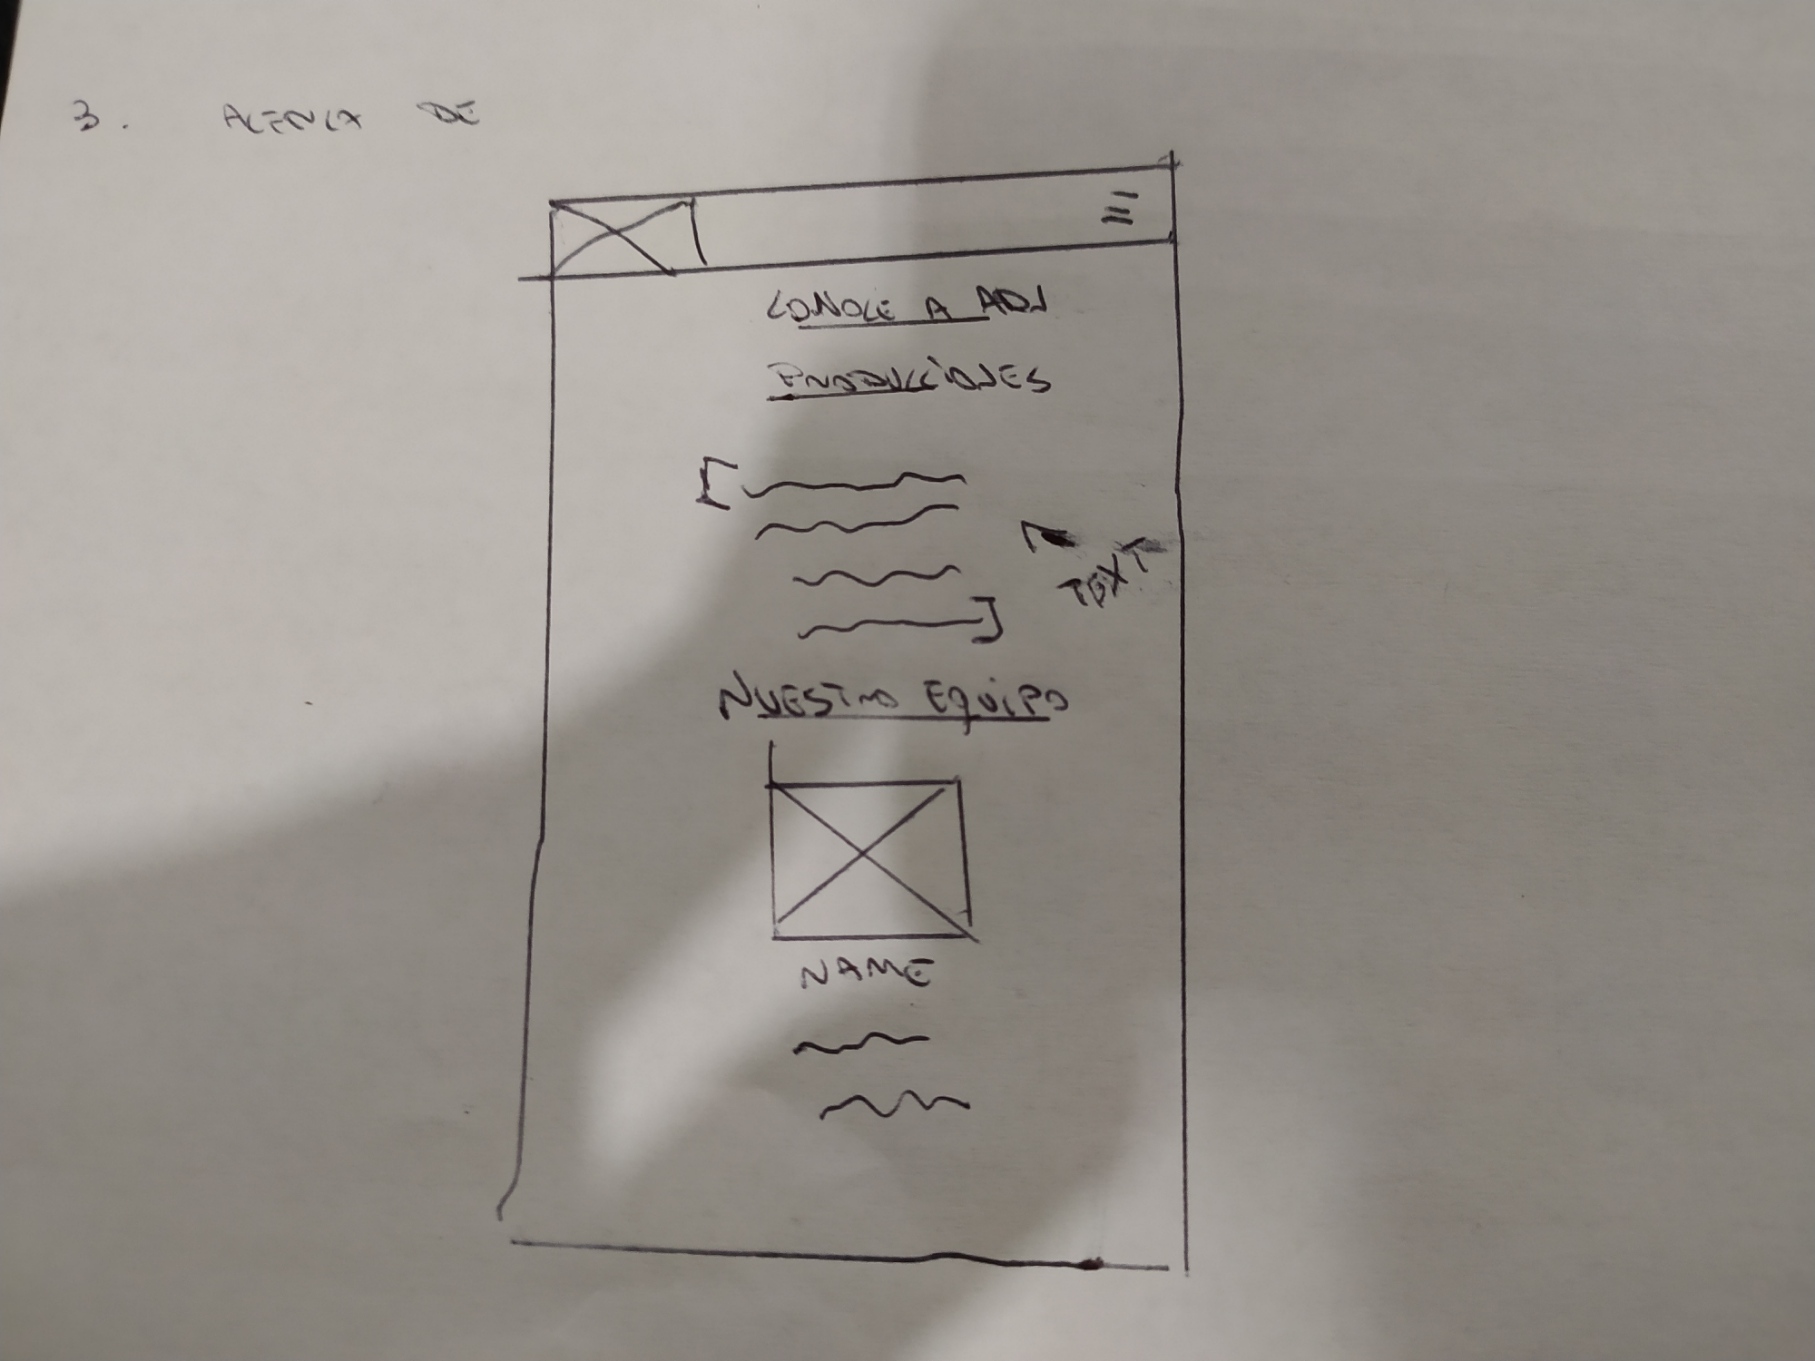 3. ACERCA DE
CONOCE A ADJ
PRODUCCIONES
TEXT
NUESTRO EQUIPO
NAME